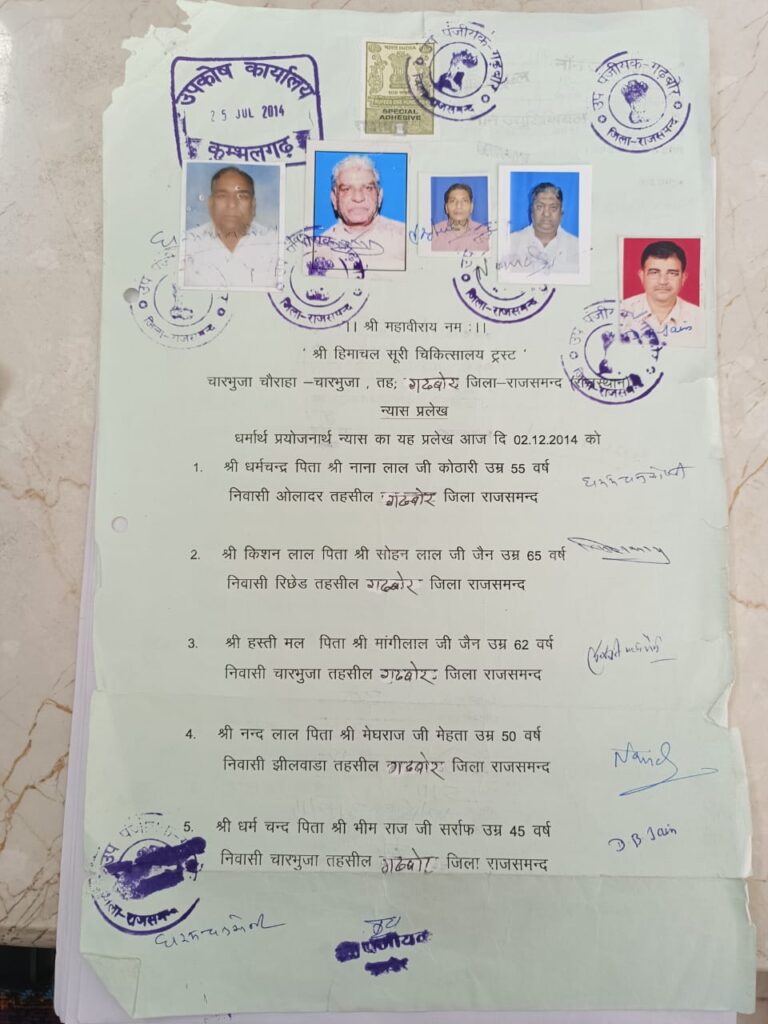 उपकोष कार्यालय
25 JUL 2014
कुम्भलगढ़
भारत INDIA
SPECIAL
ADHESIVE
उप पंजीयक-गढ़बोर
जिला-राजसमन्द
उप पंजीयक-गढ़बोर
जिला-राजसमन्द
Nand
Jain
जिला-राजसमन्द
जिला-राजसमन्द
जिला-राजसमन्द
जिला-राजसमन्द
।। श्री महावीराय नम :।।
' श्री हिमाचल सूरी चिकित्सालय ट्रस्ट '
चारभुजा चौराहा –चारभुजा , तह; गढबोर जिला–राजसमन्द (राजस्थान)
न्यास प्रलेख
धर्मार्थ प्रयोजनार्थ न्यास का यह प्रलेख आज दि 02.12.2014 को
1. श्री धर्मचन्द्र पिता श्री नाना लाल जी कोठारी उम्र 55 वर्ष
निवासी ओलादर तहसील गढबोर जिला राजसमन्द
2. श्री किशन लाल पिता श्री सोहन लाल जी जैन उम्र 65 वर्ष
निवासी रिछेड तहसील गढबोर जिला राजसमन्द
3. श्री हस्ती मल पिता श्री मांगीलाल जी जैन उम्र 62 वर्ष
निवासी चारभुजा तहसील गढबोर जिला राजसमन्द
4. श्री नन्द लाल पिता श्री मेघराज जी मेहता उम्र 50 वर्ष
Nand
निवासी झीलवाडा तहसील गढबोर जिला राजसमन्द
5. श्री धर्म चन्द पिता श्री भीम राज जी सर्राफ उम्र 45 वर्ष
D B Jain
निवासी चारभुजा तहसील गढबोर जिला राजसमन्द
उप पंजीयक
जिला-राजसमन्द
उप
पंजीयक